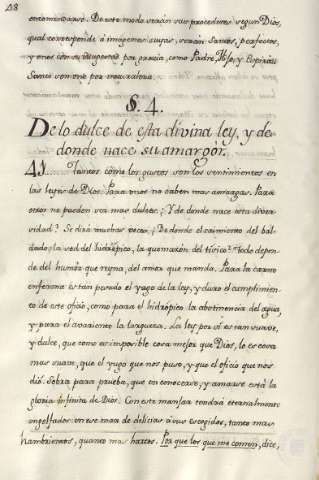 48
encaminarse. De este modo verán sus procederes segun Dios,
qual corresponde á imagenes suyas, serán Santos, perfectos,
y unos con su por gracia, como Padre, Hijo, y Espiritu
Santo son uno por naturaleza.
§. 4.
De lo dulce de esta divina ley, y de
donde nace su amargór.
41. Tantos como los gustos son los sentimientos en
las leyes de Dios. Para unos no saben mas amargas. Para
otros no pueden ser mas dulces. ¿Y de donde nace esta diver-
sidad? Se dirá muchas veces, ¿De donde el caimiento del bal-
dado, la sed del hidrópico, la quemazón del tísico? Todo depen-
de del humór que reyna, del amór que manda. Para la carne
enferma es tan pesado el yugo de la ley, y duro el cumplimien-
to de este oficio, como para el hidrópico la abstinencia del agua,
y para el avariento la largueza. La ley por sí es tan suave,
y dulce, que como es imposible cosa mejor que Dios, lo es cosa
mas suave, que el yugo que nos puso, y que el oficio que nos
dió. Sobra para prueba, que en conocerse, y amarse está la
gloria infinita de Dios. Con esta manjar tendrá eternalmente
engolfados en ese mar de delicias á sus escogidos, tanto mas
hambrientos, quanto mas hartos. Los que los que me comen, dice,